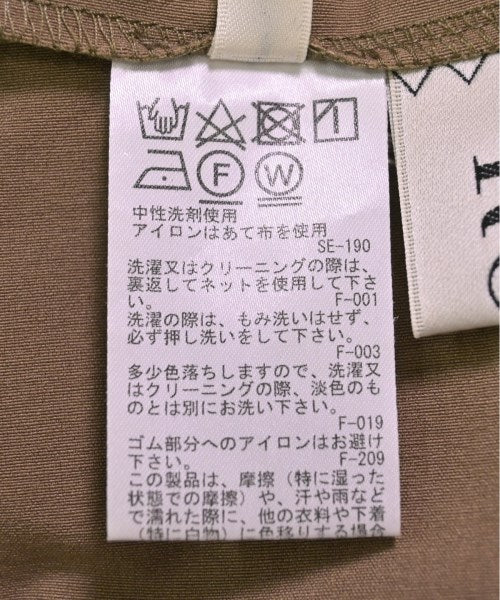 F
W
中性洗剤使用
アイロンはあて布を使用
SE-190
洗濯又はクリーニングの際は、
裏返してネットを使用して下さ
い。 F-001
洗濯の際は、もみ洗いはせず、
必ず押し洗いをして下さい。
F-003
多少色落ちしますので、洗濯又
はクリーニングの際、淡色のも
のとは別にお洗い下さい。
F-019
ゴム部分へのアイロンはお避け
下さい。 F-209
この製品は、摩擦（特に湿った
状態での摩擦）や、汗や雨など
で濡れた際に、他の衣料や下着
（特に白物）に色移りする場合